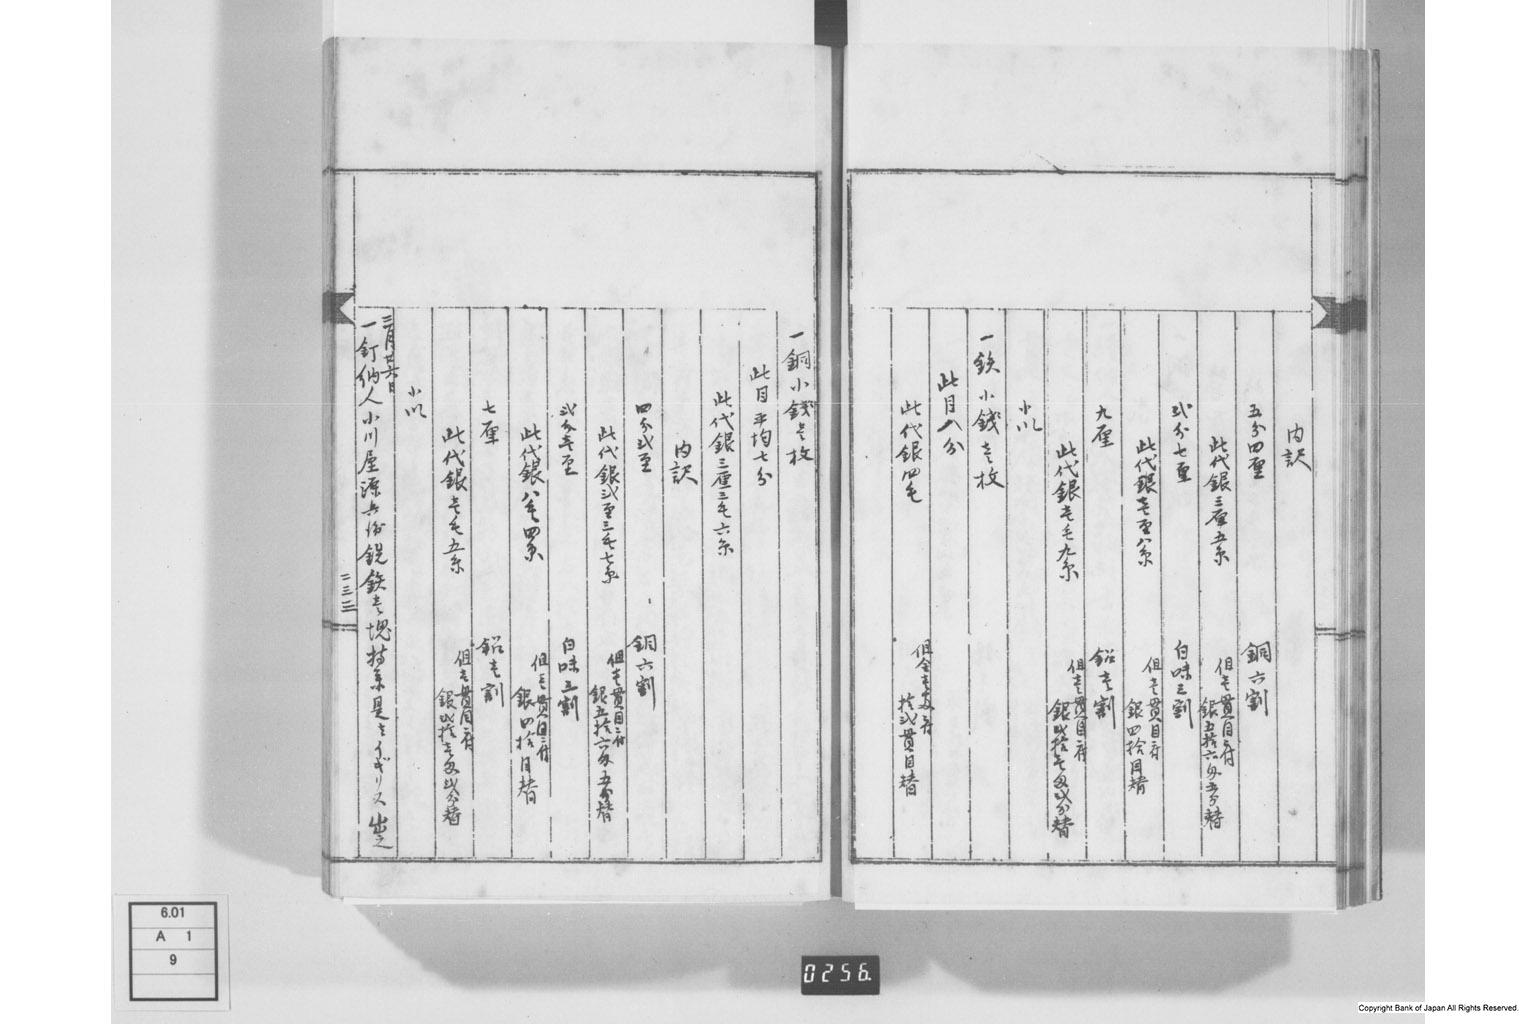 内訳
五分四厘
銅六割
此代銀三厘五糸
但壱貫目ニ付
銀五拾六匁五分替
弐分七厘
白味三割
此代銀壱厘八糸
但壱貫目ニ付
銀四拾目替
九厘
鉛壱割
此代銀壱毛九糸
但壱貫目ニ付
銀弐拾壱匁弐分替
小以
一鉄小銭壱枚
此目八分
此代銀四毛
但金壱両ニ付
拾弐貫目替
一銅小銭壱枚
此目平均七分
此代銀三厘三毛六糸
内訳
四分弐厘
銅六割
此代銀弐厘三毛七糸
但壱貫目ニ付
銀五拾六匁五分替
弐分壱厘
白味三割
此代銀八毛四糸
但壱貫目ニ付
銀四拾目替
七厘
鉛壱割
此代銀壱毛五糸
但壱貫目ニ付
銀弐拾壱匁弐分替
小以
三月廿六日
一釘納人小川屋源兵衛銑鉄壱塊持来是はイギリス出之
二三三
6.01
A 1
9
0256.
Copyright Bank of Japan All Rights Reserved.